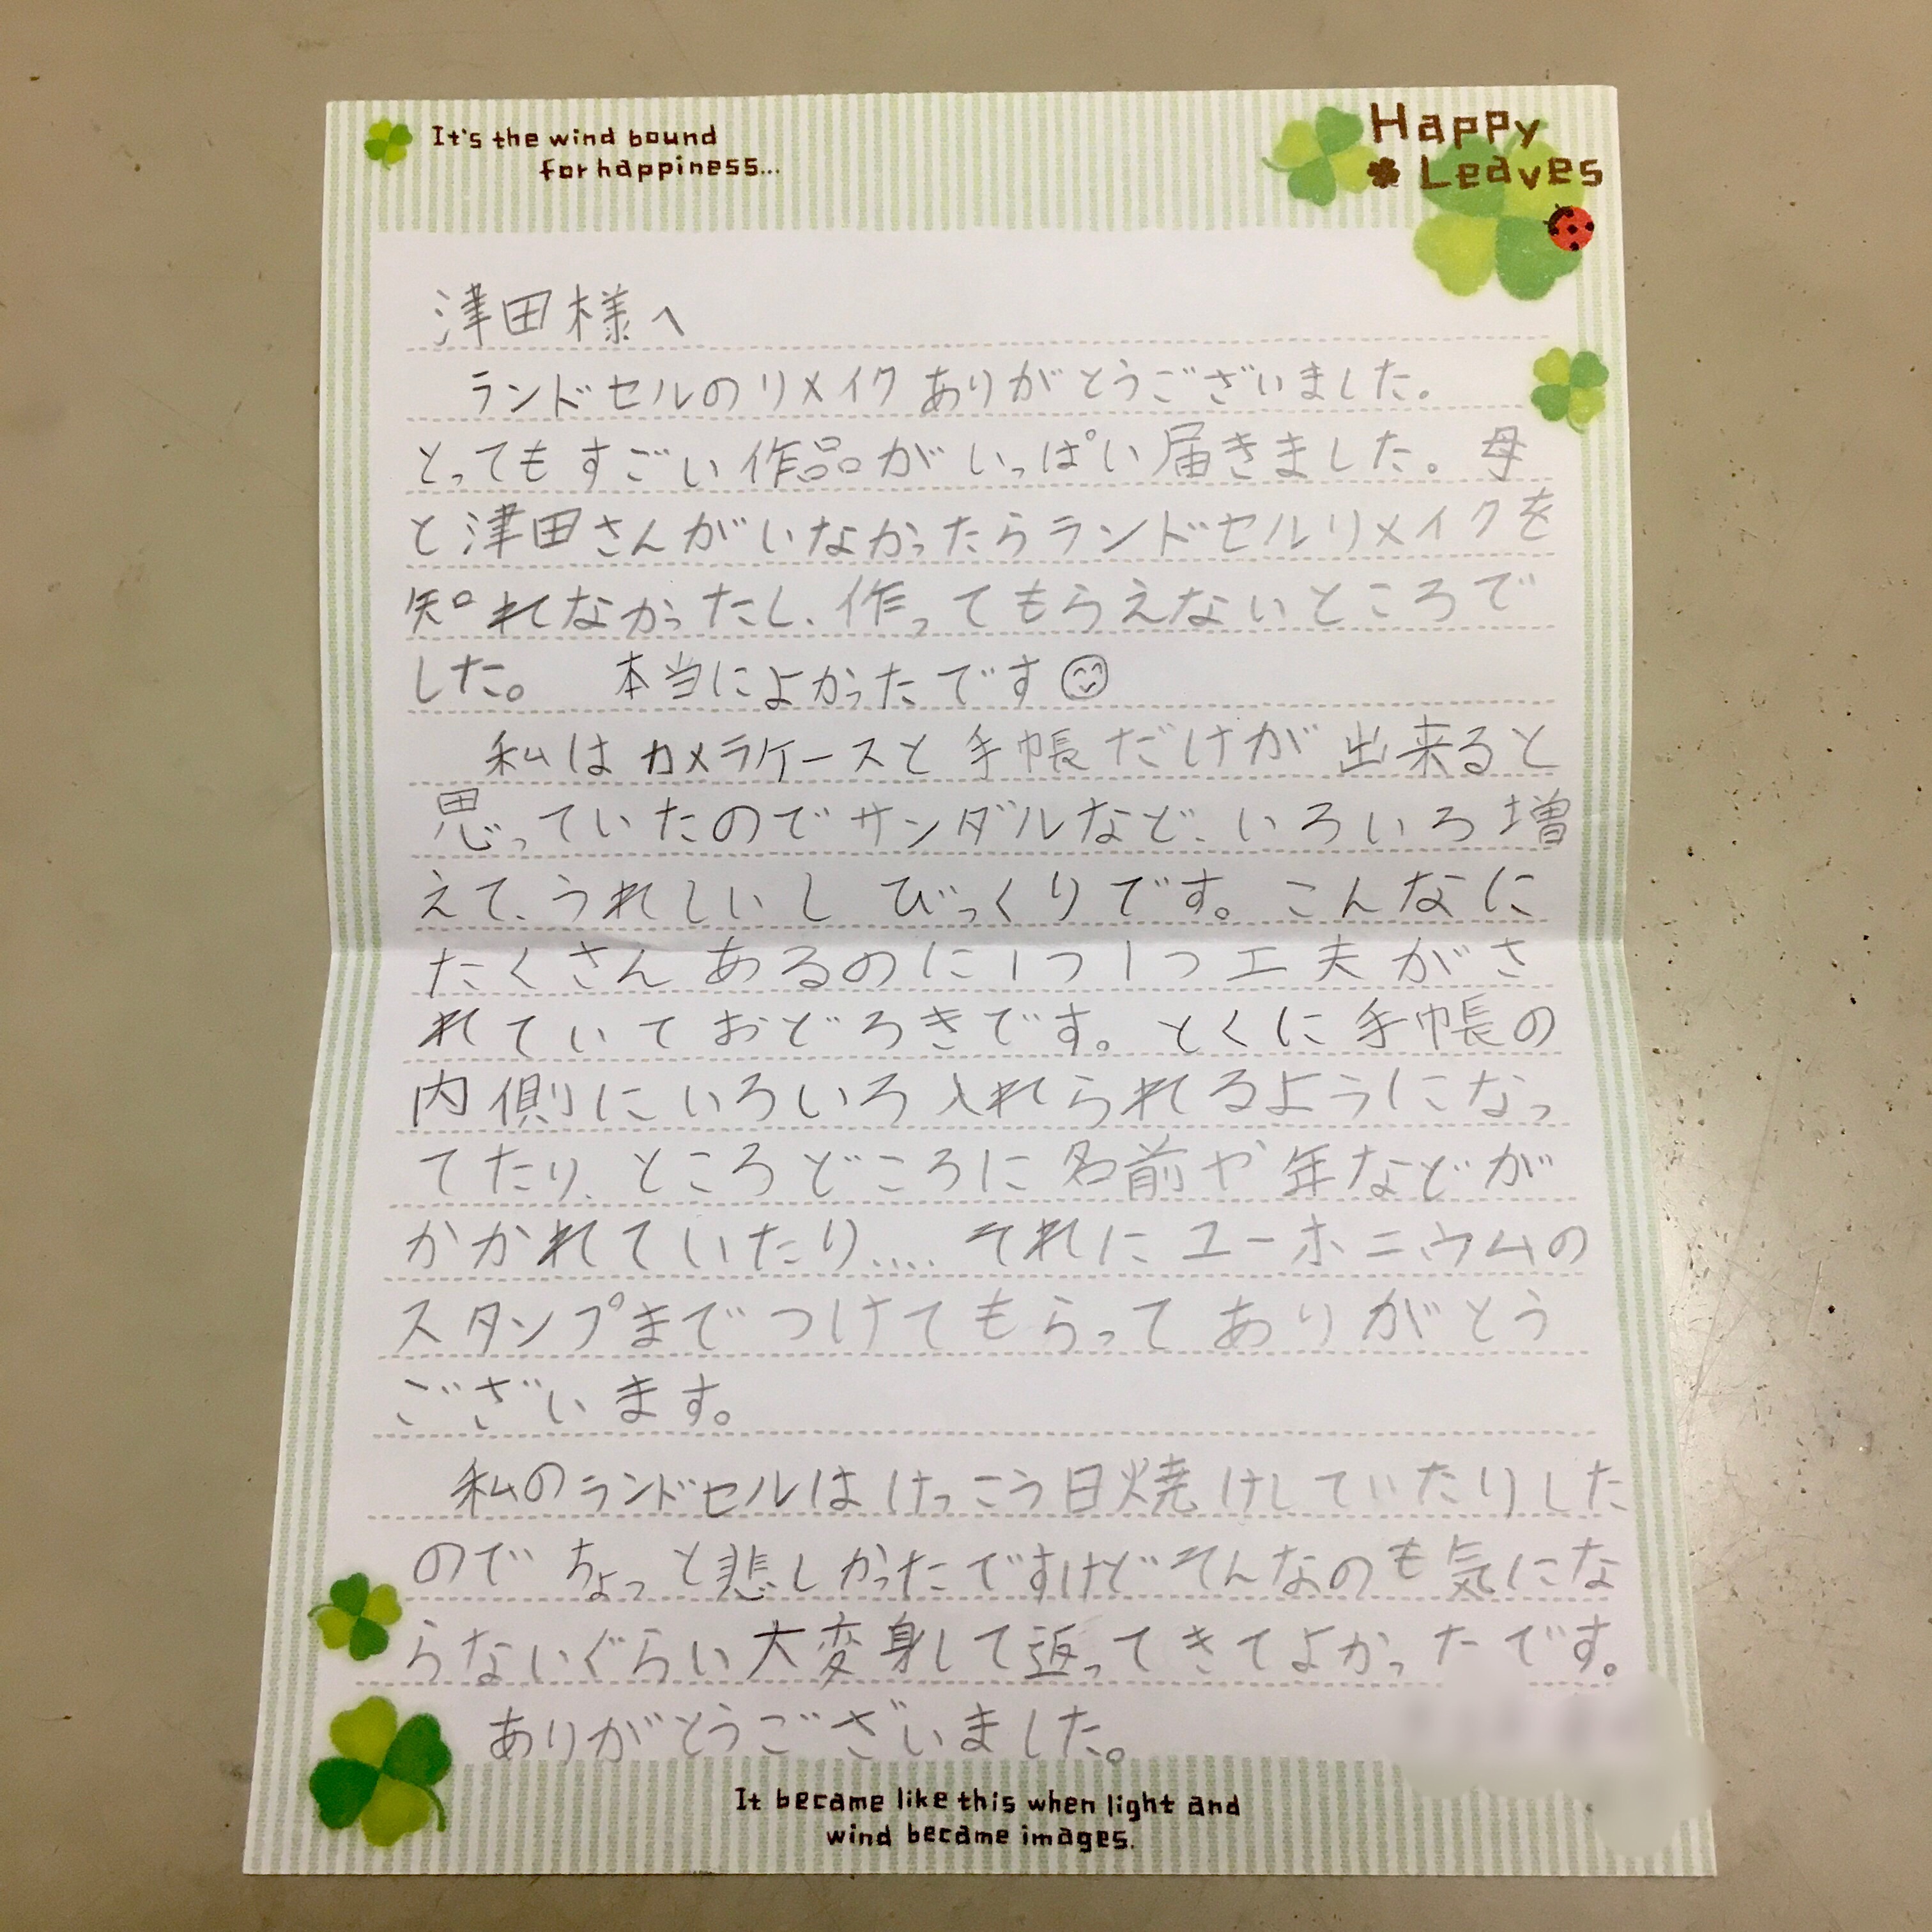 It's the wind bound
for happiness...
Happy
Leaves
津田様へ
ランドセルのリメイクありがとうございました。
とってもすごい作品がいっぱい届きました。母
と津田さんがいなかったらランドセルリメイクを
知れなかったし、作ってもらえないところで
した。 本当によかったです
私はカメラケースと手帳だけが出来ると
思っていたのでサンダルなど、いろいろ増
えて、うれしいし びっくりです。こんなに
たくさんあるのに1つ1つ工夫がさ
れていておどろきです。とくに手帳の
内側にいろいろ入れられるようになっ
てたり、ところどころに名前や年などが
かかれていたり.... それにユーホニウムの
スタンプまでつけてもらってありがとう
ございます。
私のランドセルはけっこう日焼けしていたりした
のでちょっと悲しかったですけどそんなのも気にな
らないぐらい大変身して返ってきてよかったです。
ありがとうございました。
It became like this when light and
wind became images.